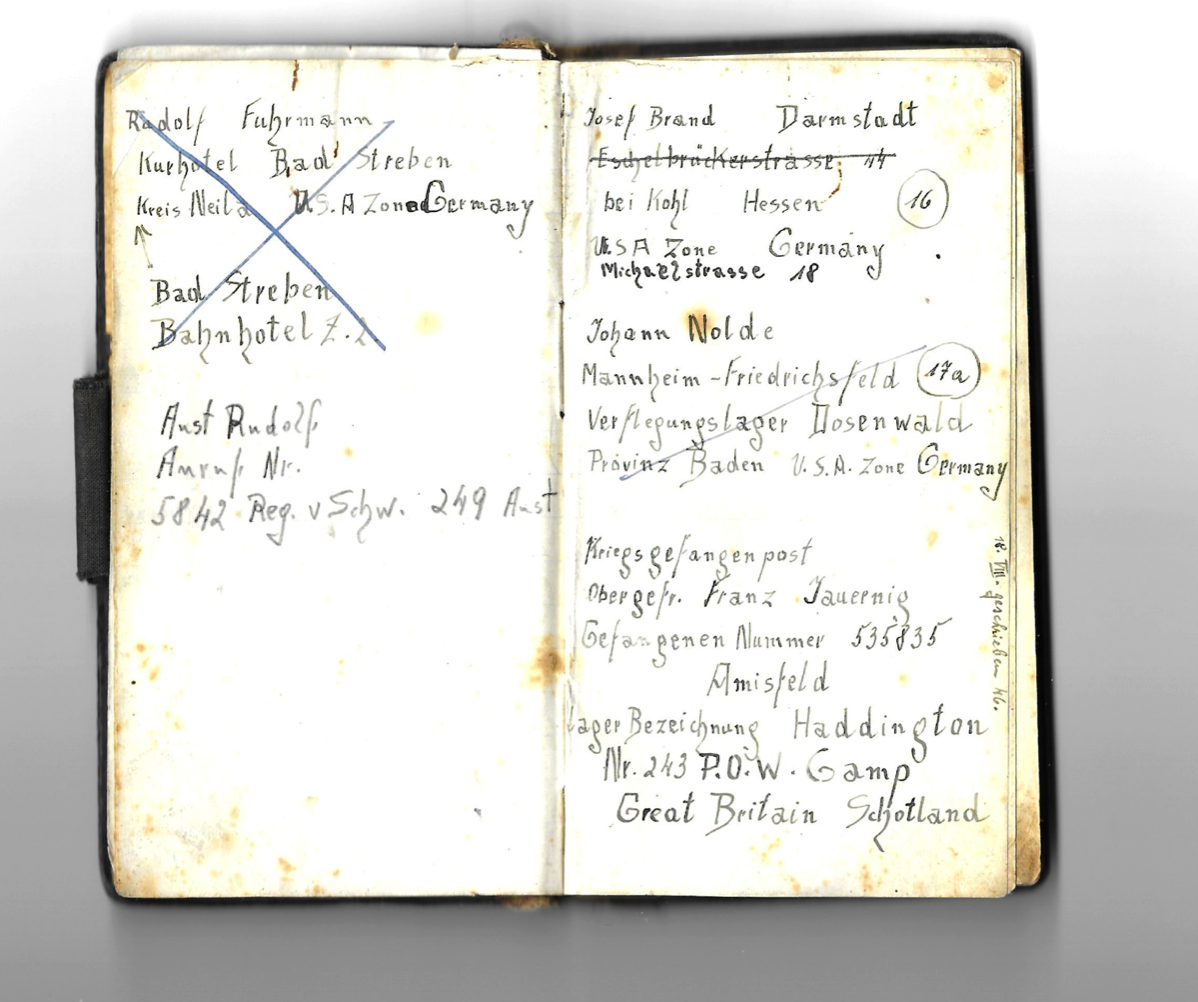 Rudolf Fuhrmann
Kurhotel Bad Streben
Kreis Neila U.S.A Zone Germany
Bad Streben
Bahnhotel Z. 2
Anst Rudolf
Anruf Nr.
5842 Reg. v Schw. 249 Anst
Josef Brand Darmstadt
Eschelbrückerstrasse 44
bei Kohl Hessen 16
U.S A Zone Germany
Michaelstrasse 18
Johann Nolde
Mannheim - Friedrichsfeld 17a
Verflegungslager Dosenwald
Provinz Baden U.S.A. Zone Germany
Kriegsgefangenpost
Obergefr. Franz Jauernig
Gefangenen Nummer 535835
Amisfeld
Lager Bezeichnung Haddington
Nr. 243 P.O.W. Camp
Great Britain Schotland
18. VIII. geschrieben 46.